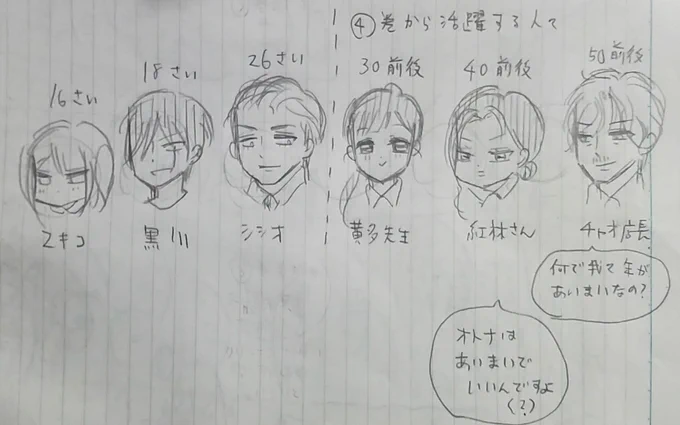 ④巻から活躍する人て
16さい
18さい
26さい
30前後
40前後
50前後
マキコ
黒川
シシオ
黄多先生
紅林さん
チトオ店長
何で我て年が
あいまいなの?
オトナは
あいまいで
いいんですよ
(?)